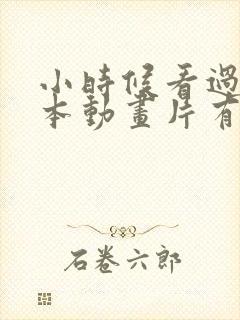 小時候看過
本動畫片有
石卷六郎